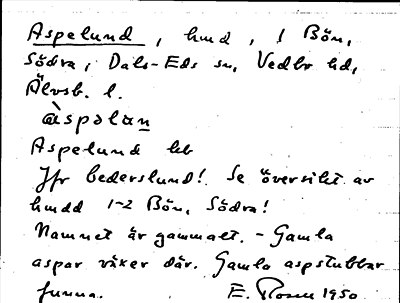 Aspelund, hmd, 1 Bön,
Södra, Dals-Eds sn, Vedbo hd,
Älvsb. l.
àspəlun
Aspelund hb
Jfr Cederslund! Se översikt av
hmdd 1-2 Bön, Södra!
Namnet är gammalt. - Gamla
aspar växer där. Gamla aspstubbar
funna. E. Rosen 1950